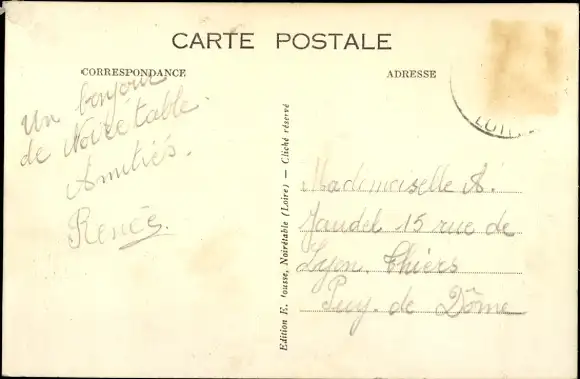 CARTE POSTALE
CORRESPONDANCE
ADRESSE
Un bonjour
de Noirétable.
Amitiés.
Renée.
Edition E. ousse, Noirétable (Loire) — Cliché réservé
Mademoiselle A.
Jaudel 15 rue de
Lyon. Thiers
Puy. de Dôme